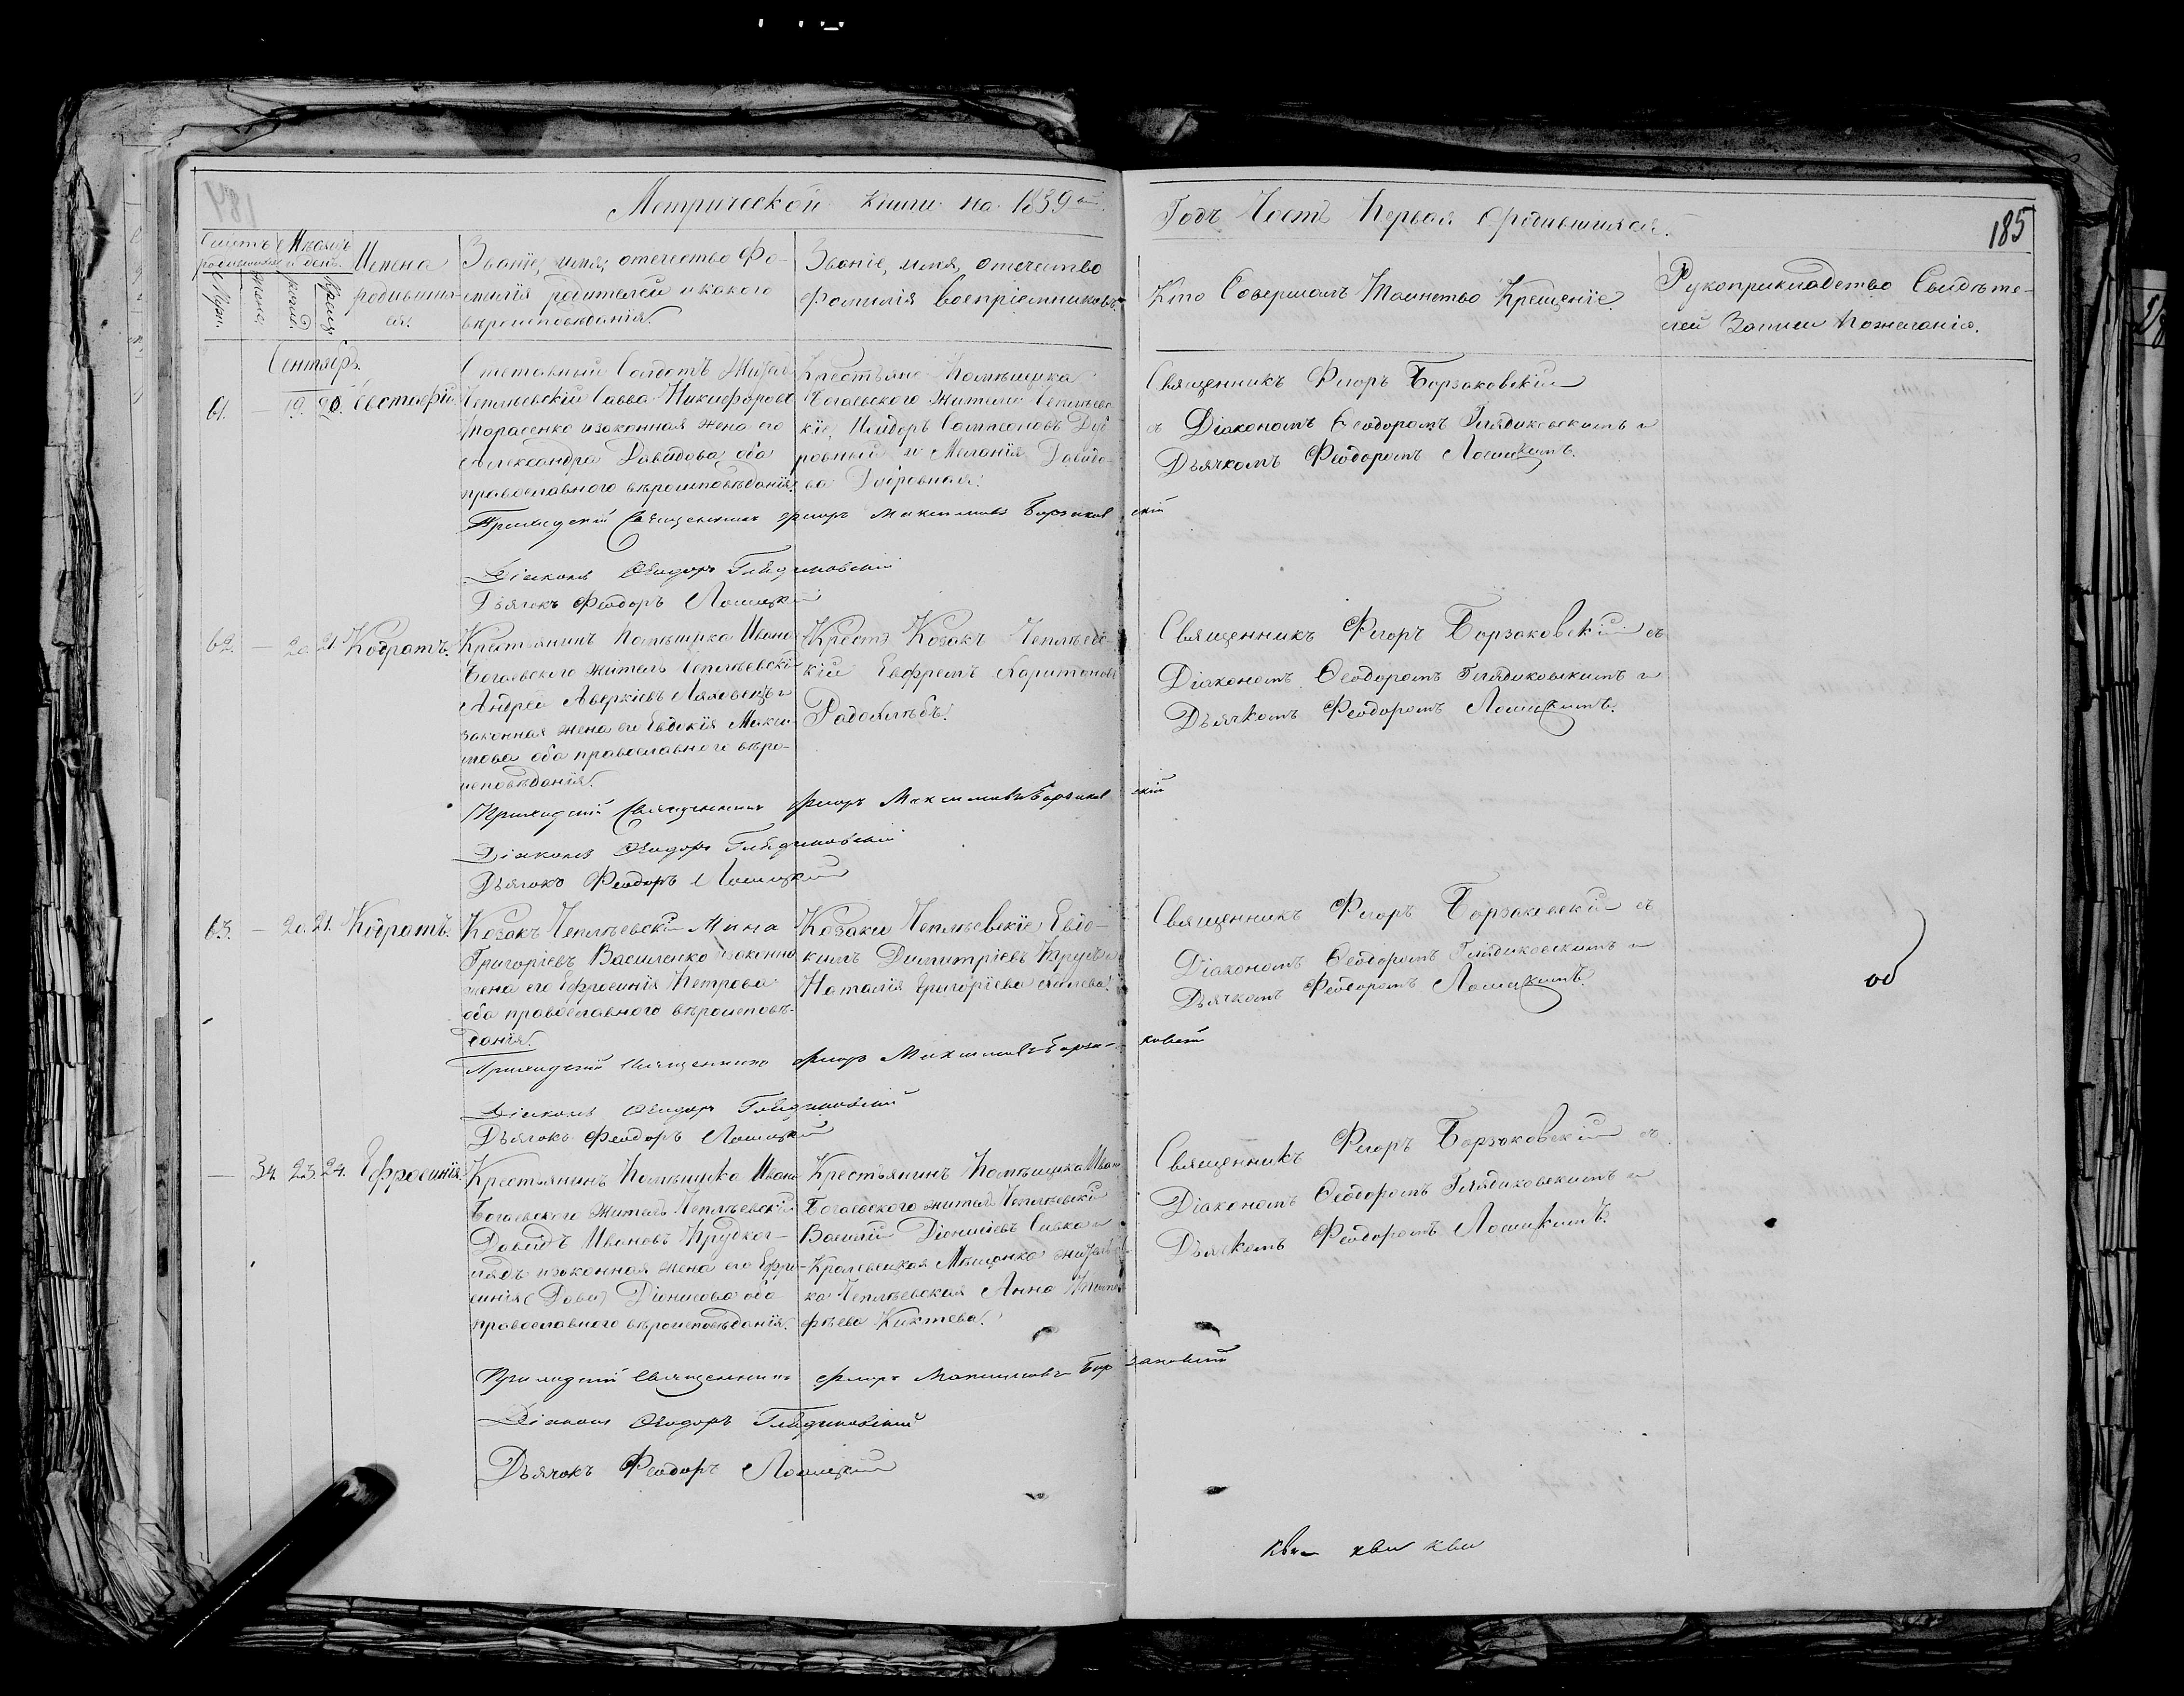 Метрической книги на 1839й.
Годъ Часть Первая о родившихся.
185
Счетъ родившихся
Мѣсяцъ и день.
Муж.
Женс.
рожд.
Крещ.
Имена родивших-
ся.
Званіе, имя, отечество Фа-
милія родителей и какого
вѣроисповѣданія.
Званіе, имя, отечество
Фамилія воспріемниковъ
Кто Совершалъ Таинство Крещеніе
Рукоприкладство Свидѣте-
лей Записи по желанію.
Сентябрь.
61. — 19. 20. Евстафій.
Солдатъ
Савва Никифоровъ
Тарасенко и законная жена его
Александра Давидова оба
православного вѣроисповѣданія.
Крестьяне Помѣщика
Богаевского жители
Дуб
ровный и Меланія Давидо
ва Дубровная.
Священникъ Флоръ Борзаковскій
съ Діакономъ Ѳеодоромъ Глядиковскимъ и
Дьячкомъ Феодоромъ Лошицкимъ.
Приходскій Священникъ Флоръ Максимовъ Борзаковскій
Діаконъ Ѳеодоръ Глядиковскій
Дьячокъ Феодоръ Лошицкій
62. — 20. 21. Кодратъ.
Крестьянинъ Помѣщика Ивана
Богаевского житель Чеплѣевскій
Андрей Аверкіевъ Ляховецъ и
законная жена его Евдокія Макси-
мова оба православного вѣро-
исповѣданія.
Козакъ Чеплѣевс
кій Евфремъ Харитоновъ
Священникъ Флоръ Борзаковскій съ
Діакономъ Ѳеодоромъ Глядиковскимъ и
Дьячкомъ Феодоромъ Лошицкимъ.
Приходскій Священникъ Флоръ Максимовъ Борзаковскій
Діаконъ Ѳеодоръ Глядиковскій
Дьячокъ Феодоръ Лошицкій
63. — 20. 21. Кодратъ.
Козакъ Чеплѣевскій Мина
Григоріевъ Василенко и законна
жена его Ефросинія Петрова
оба православного вѣроисповѣ-
данія.
Козаки Чеплѣевскіе Евдо-
кимъ Димитріевъ
Наталія Григоріева
Священникъ Флоръ Борзаковскій съ
Діакономъ Ѳеодоромъ Глядиковскимъ и
Дьячкомъ Феодоромъ Лошицкимъ.
об
Приходскій Священникъ Флоръ Максимовъ Борзаковскій
Діаконъ Ѳеодоръ Глядиковскій
Дьячокъ Феодоръ Лошицкій
— 34. 23. 24. Ефросинія.
Крестьянинъ Помѣщика Ивана
Богаевского житель Чеплѣевскій
Давидъ Ивановъ Крудког-
лядъ и законная жена его Ефро-
синія Діонисова оба
православного вѣроисповѣданія.
Крестьянинъ Помѣщика Ивана
Богаевского житель Чеплѣевскій
Василій Діонисіевъ Савка и
Кролевецкая Мѣщанка житель
ка Чеплѣевская Анна
фѣева Киктева.
Священникъ Флоръ Борзаковскій съ
Діакономъ Ѳеодоромъ Глядиковскимъ и
Дьячкомъ Феодоромъ Лошицкимъ.
Приходскій Священникъ Флоръ Максимовъ Борзаковскій
Діаконъ Ѳеодоръ Глядиковскій
Дьячокъ Феодоръ Лошицкій